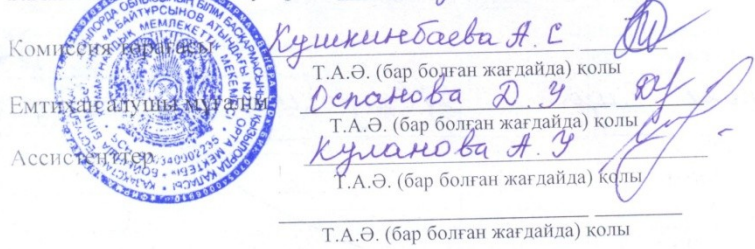 Комиссия төрағасы Кушкинбаева А. С
Т.А.Ә. (бар болған жағдайда) қолы
Емтихан алушы мұғалім Оспанова Д. У
Т.А.Ә. (бар болған жағдайда) қолы
Ассистенттер Куланова А. У
Т.А.Ә. (бар болған жағдайда) қолы
Т.А.Ә. (бар болған жағдайда) қолы